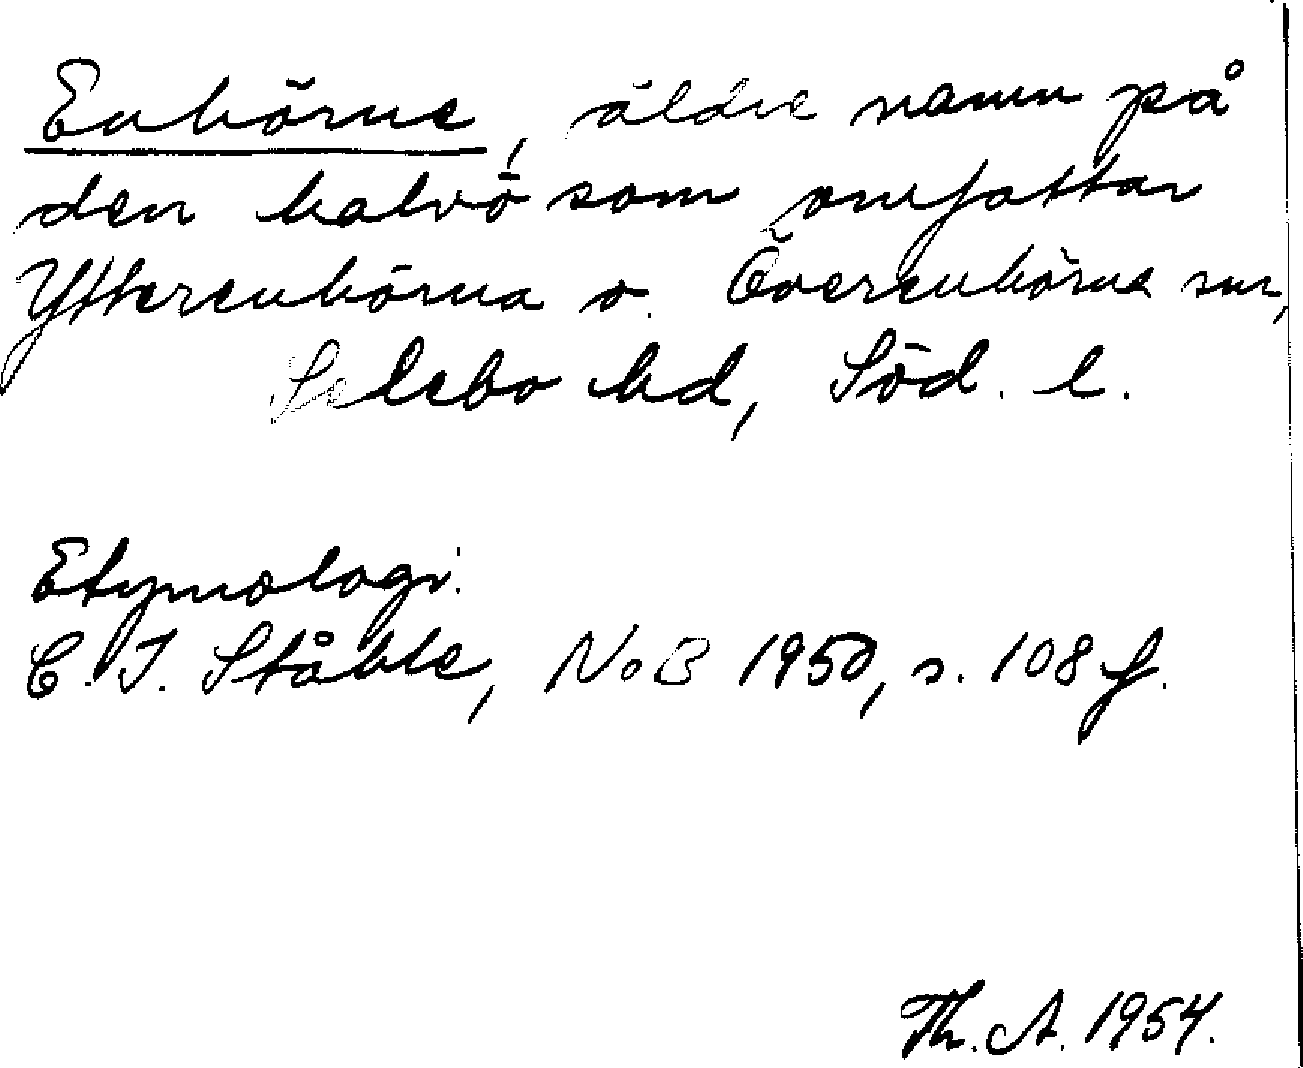 Enhörne, äldre namn på
den halvö som omfattar
Ytterenhörna o. Överenhörna snr,
Selebo hd, Söd. l.
Etymologi:
C. I. Ståhle, NoB 1950, s. 108 f.
Th. A. 1954.